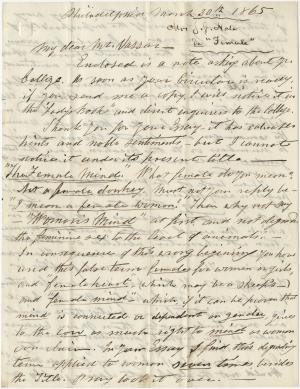 Philadelphia March 30th 1865
Mrs S. J. Hale
"Female"
My dear Mr. Vassar -
Enclosed is a note asking about yr
College. As soon as your Circular is ready,
if you send me a copy, I will notice it in
the "Lady's Book" and direct enquirers to the College.
Thank you for your Essay, it has
hints and noble sentiments - but I cannot
notice it under its present title -
"The Female Mind." What female do you mean?
Not a female donkey? Must not your reply be
"I mean a female woman"? Then why not say
"Woman's Mind" at first and not degrade
the feminine sex to the level of animals.
In consequence of this wrong beginning you have
used this false term females for women or girls,
and "female heart", which may be a sheep's -
and "female mind" - which, if it can be proven that
mind is connected or dependent on gender, gives
to the cow as much right to mind as woman
can claim. In your Essay I find this degrading
term applied to women seven times besides
the Title. Pray look it over -